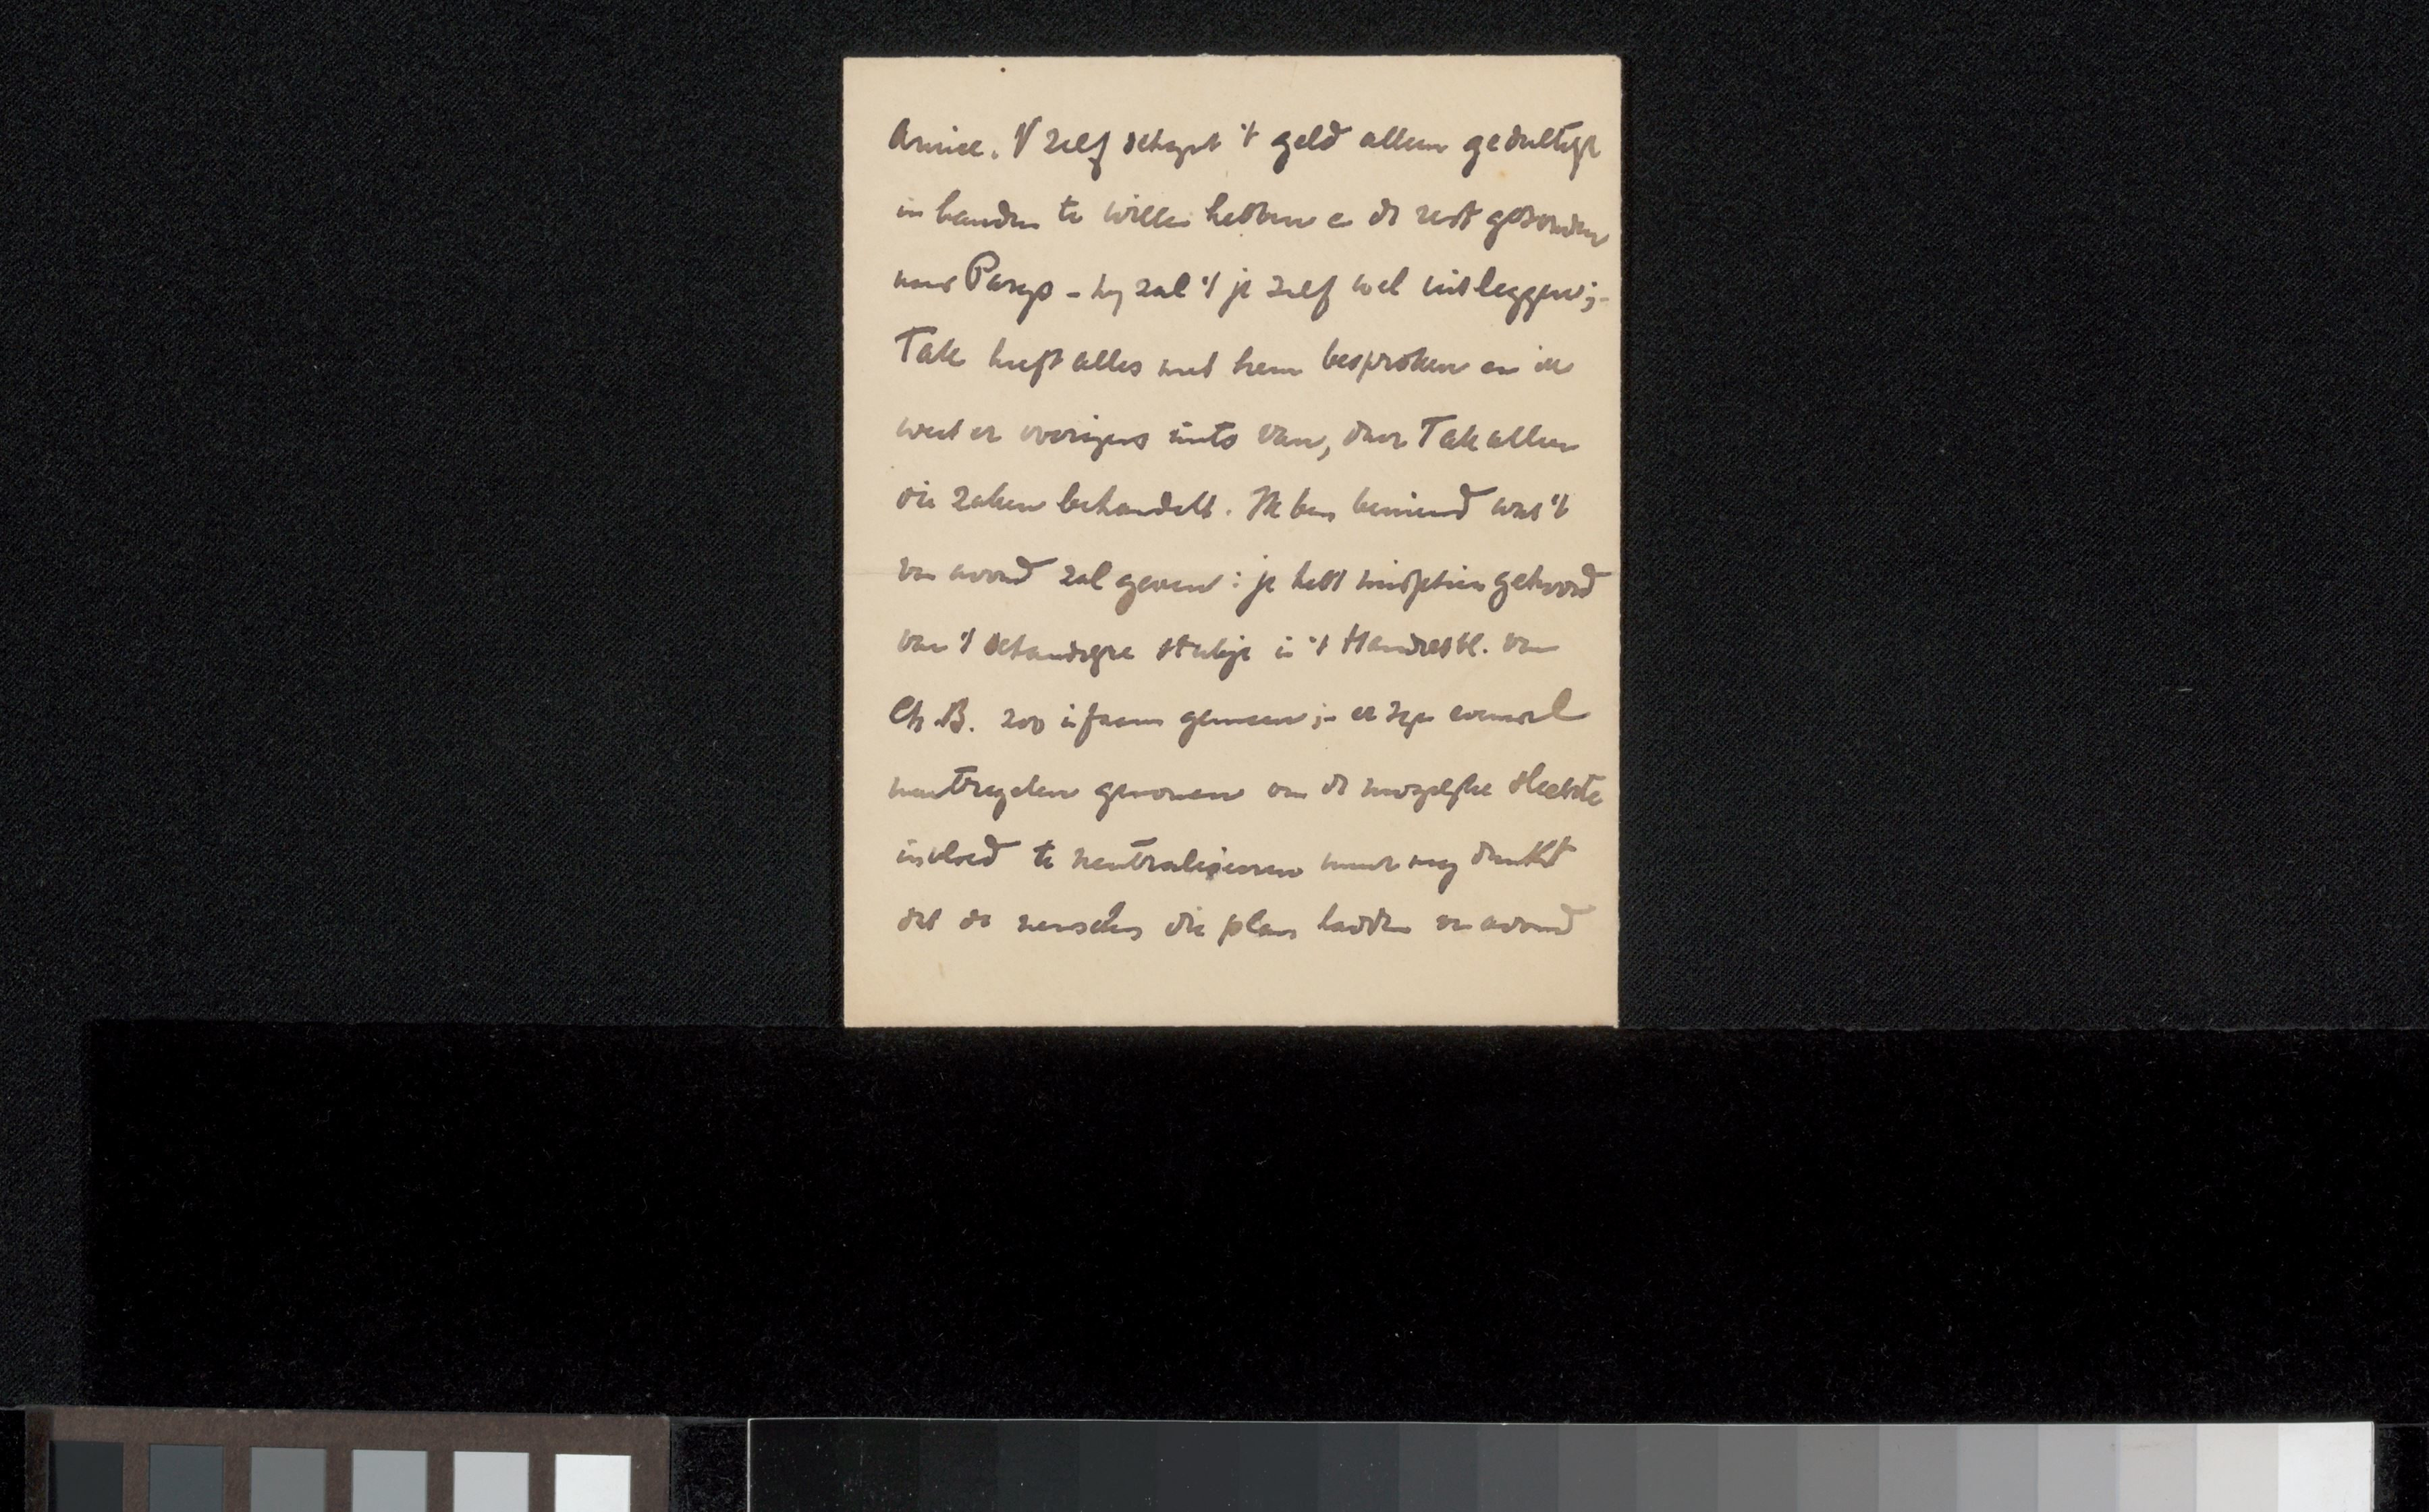 Amice. V zelf schijnt 't geld alleen gedeeltelijk
in handen te willen hebben en de rest gezonden
naar Parijs – hij zal 't je zelf wel uitleggen;–
Tak heeft alles met hem besproken en ik
weet er overigens niets van, daar Tak alleen
die zaken behandelt. Ik ben benieuwd wat 't
van avond zal geven: je hebt misschien gehoord
van 't schandige stukje in 't Handelsbl. van
Ch. B. zoo infaam gemeen;– er zijn evenwel
maatregelen genomen om de mogelijke slechte
invloed te neutraliseeren maar mij dunkt
dat de menschen die plan hadden van avond